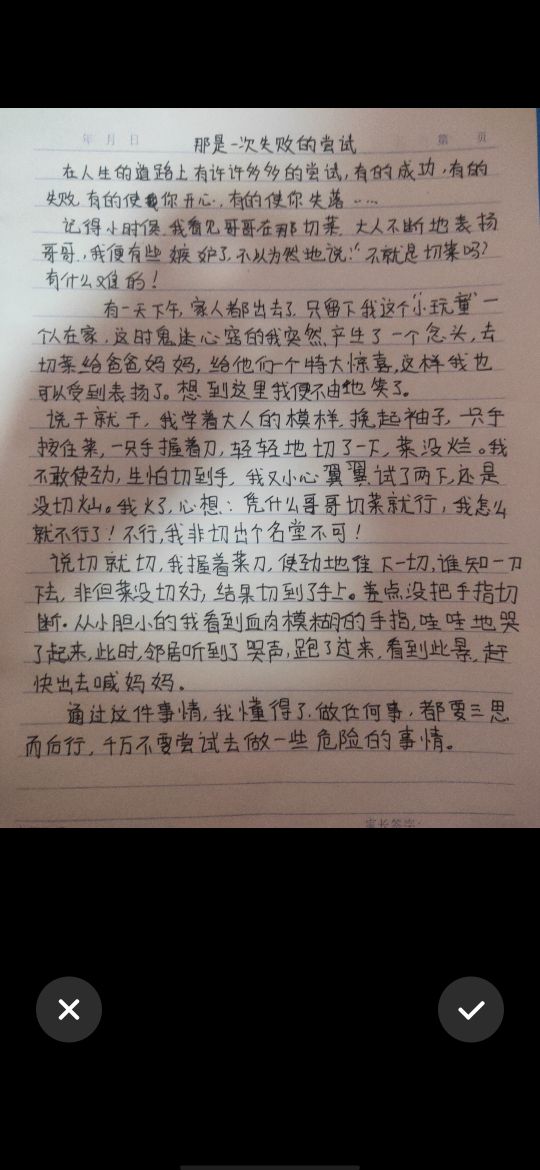 年 月 日 第 页
那是一次失败的尝试
在人生的道路上有许许多多的尝试,有的成功,有的
失败,有的使你开心,有的使你失落……
记得小时侯,我看见哥哥在那切菜,大人不断地表扬
哥哥,我便有些嫉妒了,不以为然地说:“不就是切菜吗?
有什么难的!
有一天下午,家人都出去了,只留下我这个“小玩童”一
个人在家,这时鬼迷心窍的我突然产生了一个念头,去
切菜给爸爸妈妈,给他们一个特大惊喜,这样我也
可以受到表扬了。想到这里我便不由地笑了。
说干就干,我学着大人的模样,挽起袖子,一只手
按住菜,一只手握着刀,轻轻地切了一下,菜没烂。我
不敢使劲,生怕切到手,我又小心翼翼试了两下,还是
没切灿。我火了,心想:凭什么哥哥切菜就行,我怎么
就不行了!不行,我非切出个名堂不可!
说切就切,我握着菜刀,使劲地往下一切,谁知一刀
下去,非但菜没切好,结果切到了手上。差点没把手指切
断。从小胆小的我看到血肉模糊的手指,哇哇地哭
了起来,此时,邻居听到了哭声,跑了过来,看到此景,赶
快出去喊妈妈。
通过这件事情,我懂得了,做任何事,都要三思
而后行,千万不要尝试去做一些危险的事情。
家长签字: